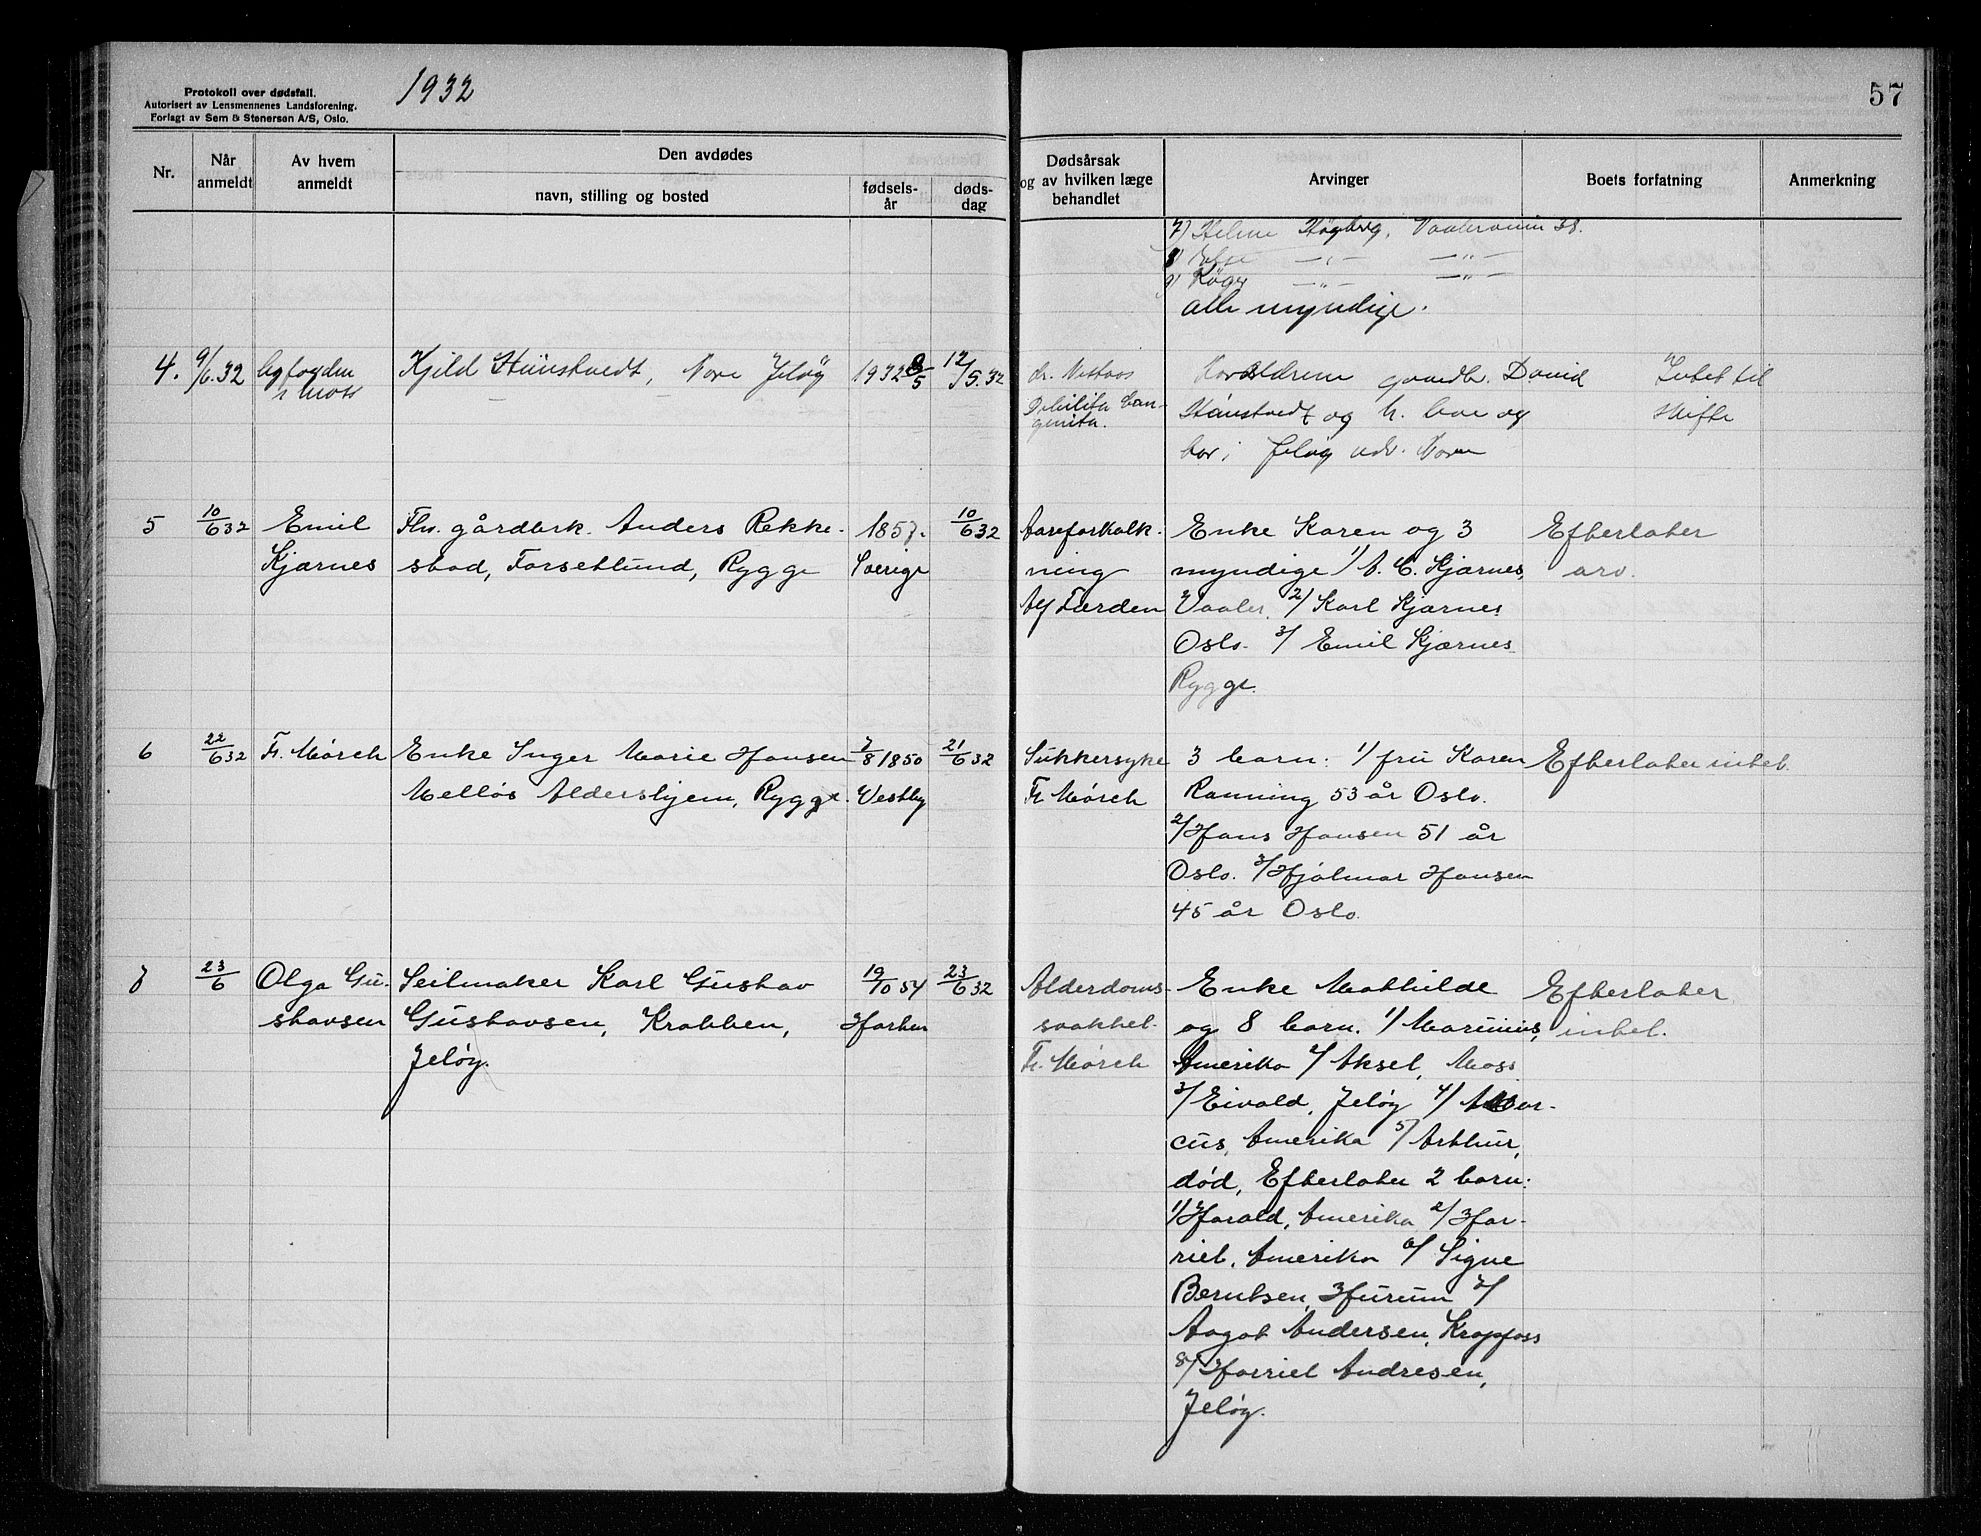 Protokoll over dødsfall.
Autorisert av Lensmennenes Landsforening.
Forlagt av Sem & Stenersen A/S, Oslo.
1932
57
Nr.
Når
anmeldt
Av hvem
anmeldt
Den avdødes
navn, stilling og bosted
fødsels-
år
døds-
dag
Dødsårsak
og av hvilken læge
behandlet
Arvinger
Boets forfatning
Anmerkning
7) Helene Høgberg,
8)
9)
alle myndige.
4.
9/6.32
Byfogden
i Moss
Kjeld Hünstvedt, Nore Jeløy
1932 8/5
12/5.32
dr.
Debilita Con-
genita.
Foreldrene gaardbr. David
Hünstvedt og h.
bor i Jeløy
Intet til
skifte
5
10/6 32
Emil
Kjærnes
Fhv. gårdbrk. Anders Rekke-
stad, Forsetlund, Rygge
1857.
Sverige
10/6 32
Aareforkalk-
ning
Alf Færden
Enke Karen og 3
myndige 1/ A. C. Kjærnes,
Vaaler. 2/ Karl Kjærnes
Oslo. 3/ Emil Kjærnes
Rygge.
Efterlater
arv.
6
22/6 32
Fr. Mørch
Enke Inger Marie Hansen
Melløs Aldershjem, Rygge.
7/8 1850
Vestby
21/6 32
Sukkersyke
Fr. Mørch
3 barn: 1/ fru Karen
Ranning 53 år Oslo.
2/ Hans Hansen 51 år
Oslo. 3/ Hjalmar Hansen
45 år Oslo.
Efterlater intet.
7
23/6
Olga Gu-
stavsen
Seilmaker Karl Gustav
Gustavsen, Krabben,
Jeløy.
19/10 54
Horten
23/6 32
Alderdoms-
svakhet.
Fr. Mørch
Enke Mathilde
og 8 barn. 1/ Marinius,
Amerika 2/ Aksel, Moss
3/ Eivald, Jeløy 4/ Mar-
cus, Amerika 5/ Arthur,
død, Efterlater 2 barn:
1/ Harald, Amerika 2/ Har-
riet, Amerika 6/ Signe
Berntsen, Hurum 7/
Aagot Andersen, Krapfoss
8/ Harriet Andresen,
Jeløy.
Efterlater
intet.